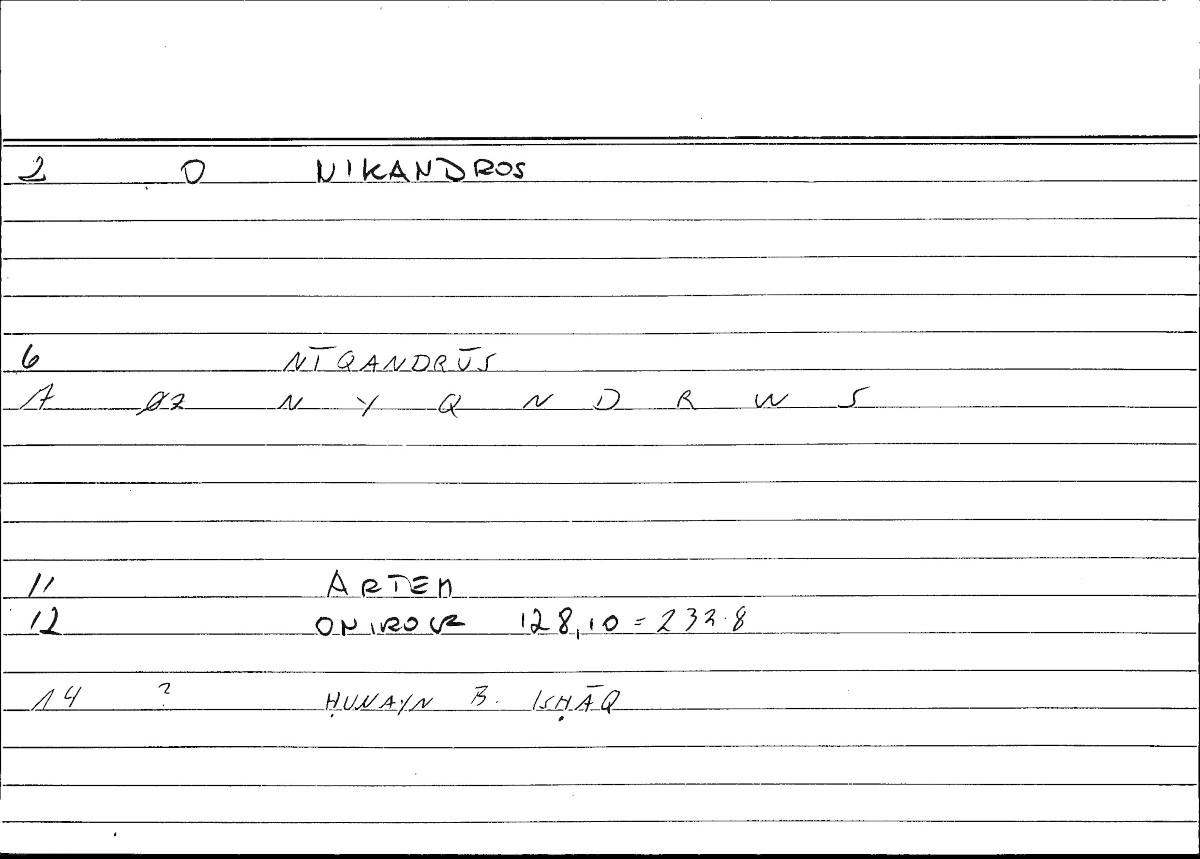 2 0 NIKANDROS
6 NĪQANDRŪS
7 02 N Y Q N D R W S
11 ARTEM
12 ONIROCR 128,10 = 232.8
14 ? ḤUNAYN B. ISḤĀQ